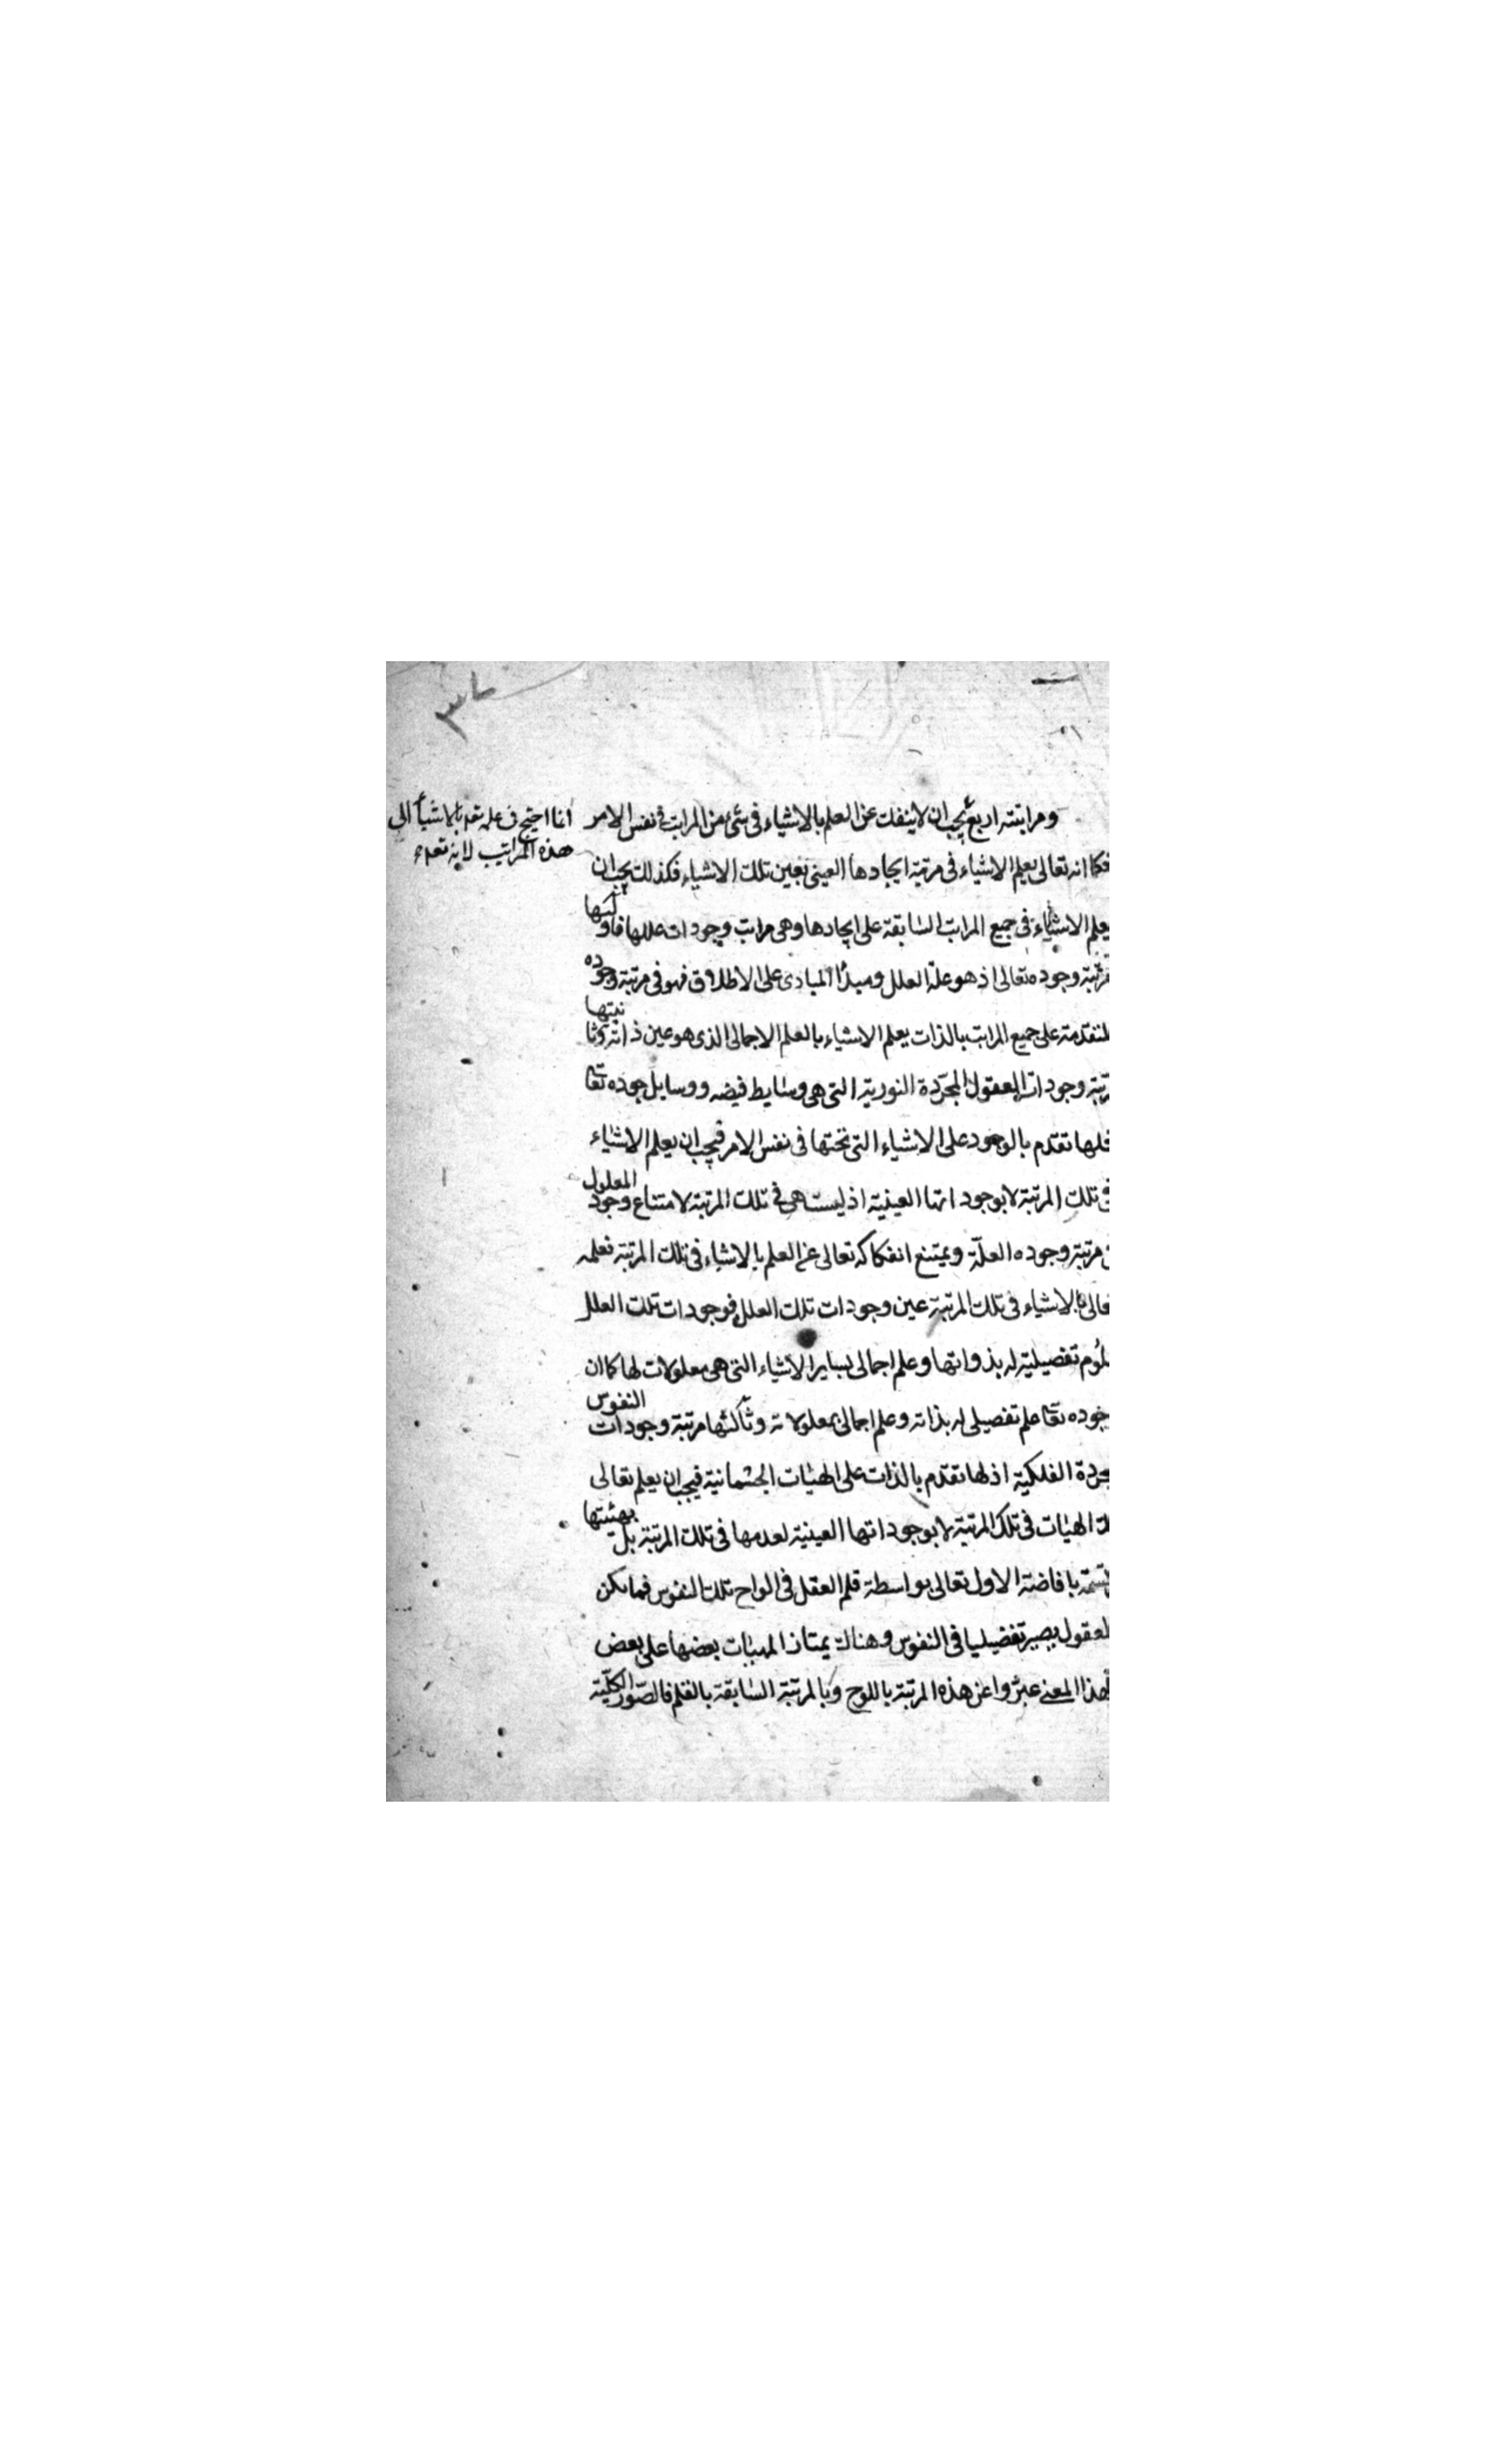 ومراتبته اربع يجب ان لا ينفك عن العلم بالاشياء في شئ من المراتب في نفس الامر
فكما انه تعالى يعلم الاشياء في مرتبة ايجادها العيني بعين تلك الاشياء فكذلك يجب ان
يعلم الاشياء في جميع المراتب السابقة على ايجادها وهي مراتب وجودات عللها فاولتها
مرتبة وجوده تعالى اذ هو علة العلل ومبدأ المبادى على الاطلاق فهو في مرتبة وجوده
لمتقدمة على جميع المراتب بالذات يعلم الاشياء بالعلم الاجمالي الذى هو عين ذاته وثانيتها
رتبة وجودات العقول المجردة النورية التي هي وسايط فيضه ووسايل جوده تعا
فلها تقدم بالوجود على الاشياء التي تحتها في نفس الامر فيجب ان يعلم الاشياء
في تلك المرتبة لا بوجوداتها العينية اذ ليست هي في تلك المرتبة لامتناع وجود المعلول
مرتبة وجوده العلة ويمتنع انفكاكه تعالى عن العلم بالاشياء في تلك المرتبة فعلمه
عالى بالاشياء في تلك المرتبة عين وجودات تلك العلل فوجودات تلك العلل
لوم تفصيلية له بذواتها وعلم اجمالى لساير الاشياء التي هي معلولات لها كما ان
وجوده تعا علم تفصيلى له بذاته وعلم اجمالى بمعلولاته وثالثها مرتبة وجودات النفوس
جردة الفلكية اذ لها تقدم بالذات على الهيئات الجسمانية فيجب ان يعلم تعالى
الهيئات في تلك المرتبة لا بوجوداتها العينية لعدمها في تلك المرتبة بل بهيئتها
بافاضة الاول تعالى بواسطة قلم العقل في الواح تلك النفوس فما يكن
لعقول يصير تفضيليا في النفوس وهناك يمتاز المهيات بعضها على بعض
هذا المعنى عبروا عن هذه المرتبة باللوح وبالمرتبة السابقة بالقلم فالصور الكلية
انما احتيج في علمه تعه بالاشيأ الى
هذه المراتب لانه تعه
٣٧